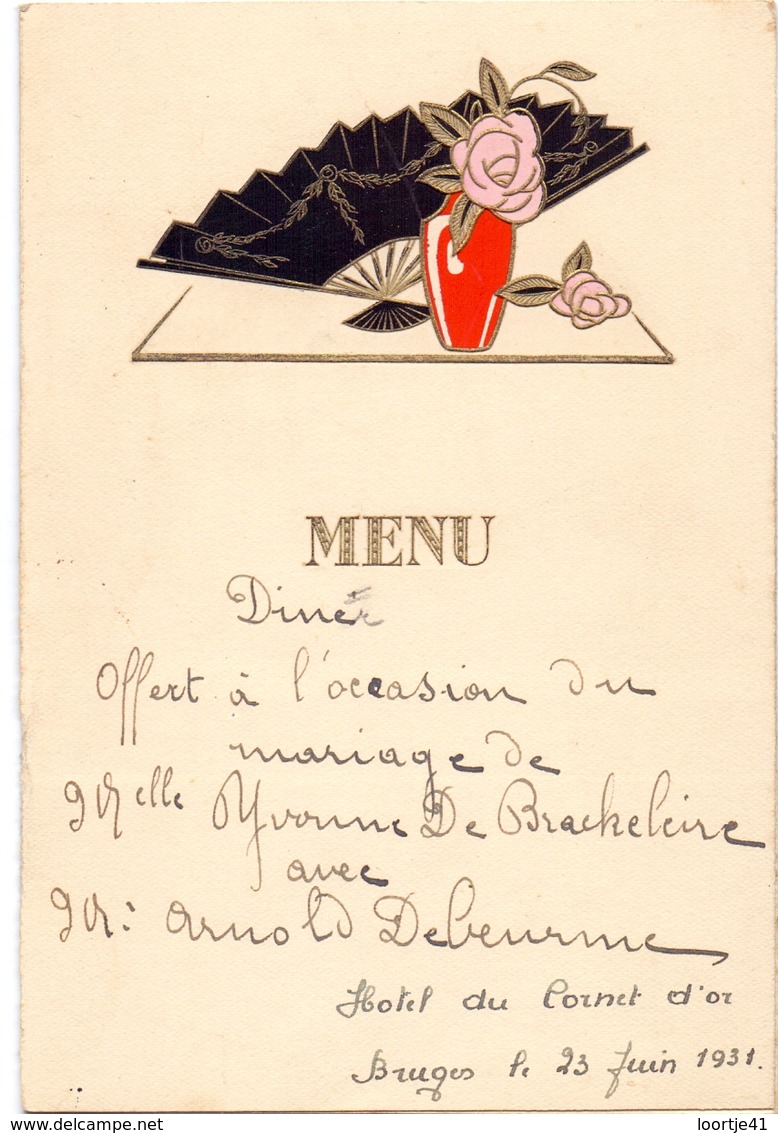 MENU
Diner
Offert à l'occasion du
mariage de
Melle Yvonne De Brackeleire
avec
Mr: Arnold Debeurme
Hotel du Cornet d'or
Bruges le 23 Juin 1931.
www.delcampe.net
loortje41